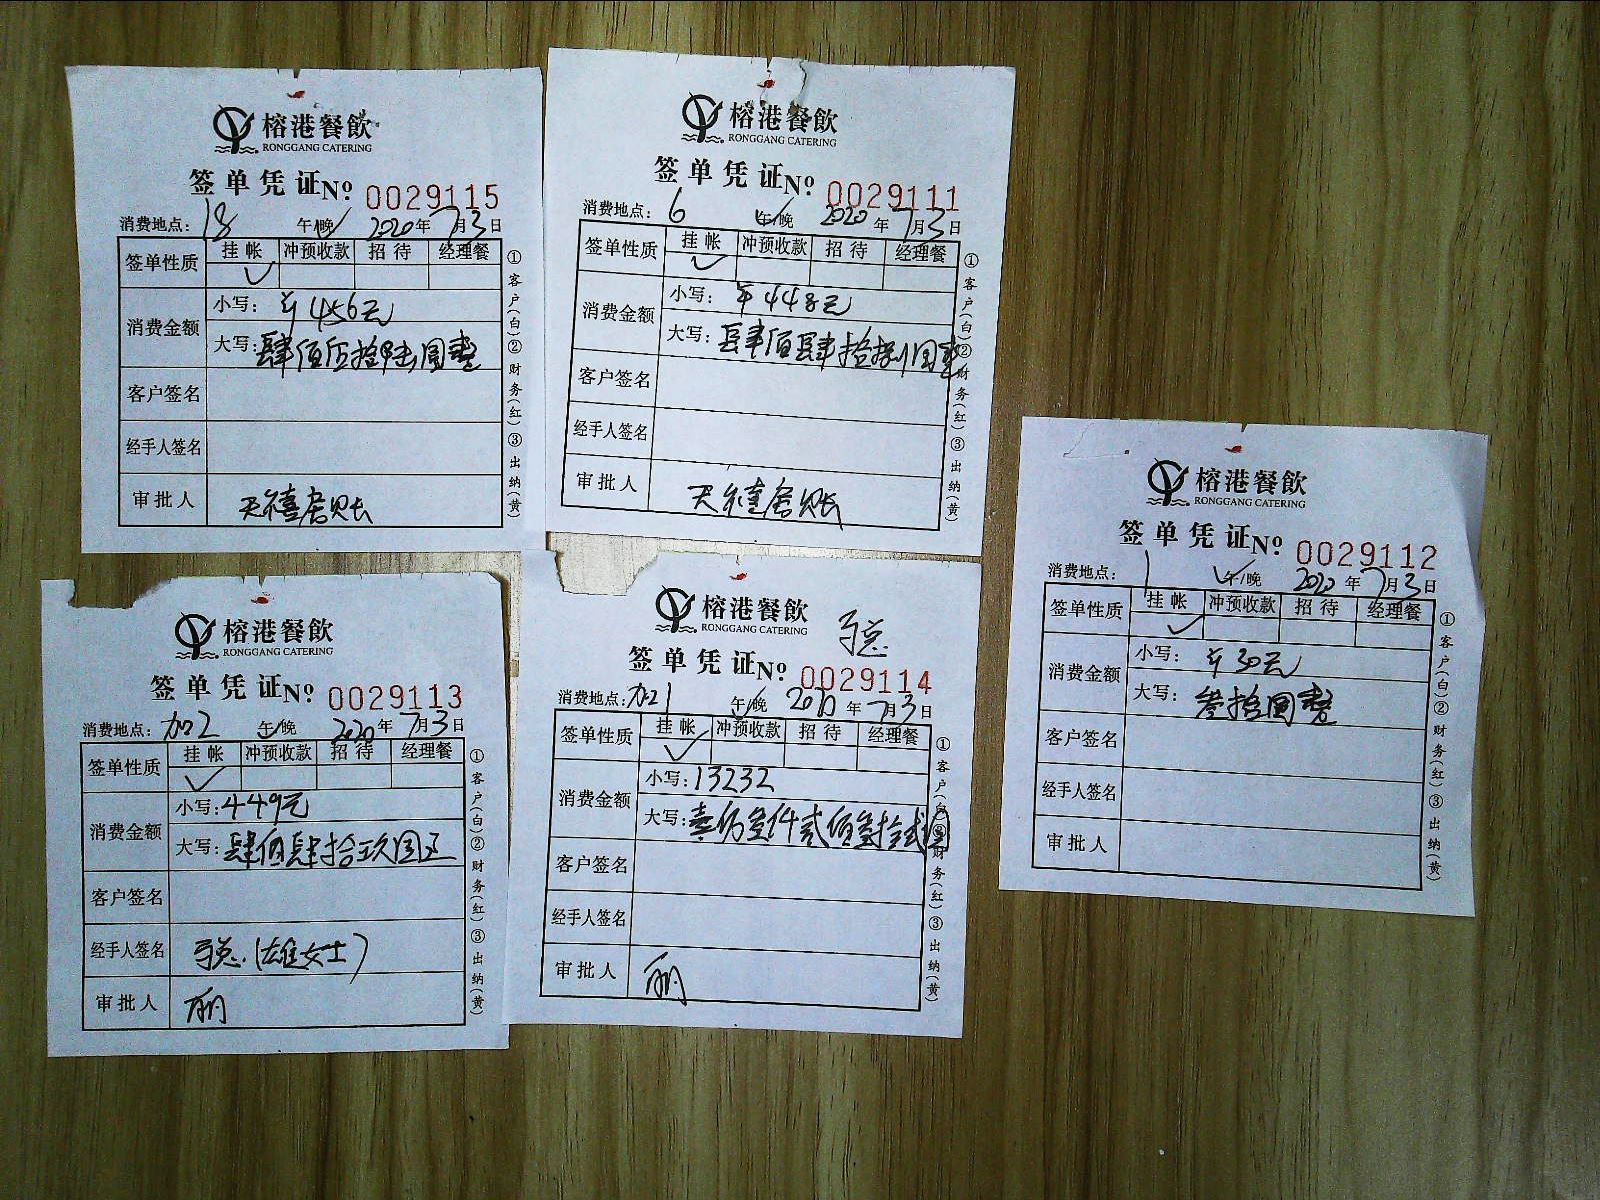 榕港餐飲
RONGGANG CATERING
签单凭证 Nº 0029115
消费地点: 18 午/晚 2020年7月3日
签单性质 挂帐 冲预收款 招待 经理餐
✓
消费金额 小写: ¥456元
大写: 肆佰伍拾陆圆整
客户签名
经手人签名
审批人 天禧房账
①客户(白)②财务(红)③出纳(黄)
榕港餐飲
RONGGANG CATERING
签单凭证 Nº 0029111
消费地点: 6 午/晚 2020年7月3日
签单性质 挂帐 冲预收款 招待 经理餐
✓
消费金额 小写: ¥448元
大写: 肆佰肆拾捌圆整
客户签名
经手人签名
审批人 天禧房账
①客户(白)②财务(红)③出纳(黄)
榕港餐飲
RONGGANG CATERING
签单凭证 Nº 0029112
消费地点: 1 午/晚 2020年7月3日
签单性质 挂帐 冲预收款 招待 经理餐
✓
消费金额 小写: ¥30元
大写: 叁拾圆整
客户签名
经手人签名
审批人
①客户(白)②财务(红)③出纳(黄)
榕港餐飲
RONGGANG CATERING
签单凭证 Nº 0029113
消费地点: 加2 午/晚 2020年7月3日
签单性质 挂帐 冲预收款 招待 经理餐
✓
消费金额 小写: 449元
大写: 肆佰肆拾玖圆正
客户签名
经手人签名 (雄女士)
审批人 丽
①客户(白)②财务(红)③出纳(黄)
榕港餐飲
RONGGANG CATERING
签单凭证 Nº 0029114
消费地点: 加1 午/晚 2020年7月3日
签单性质 挂帐 冲预收款 招待 经理餐
✓
消费金额 小写: 13232
大写: 壹万叁仟贰佰叁拾贰圆
客户签名
经手人签名
审批人 丽
①客户(白)②财务(红)③出纳(黄)